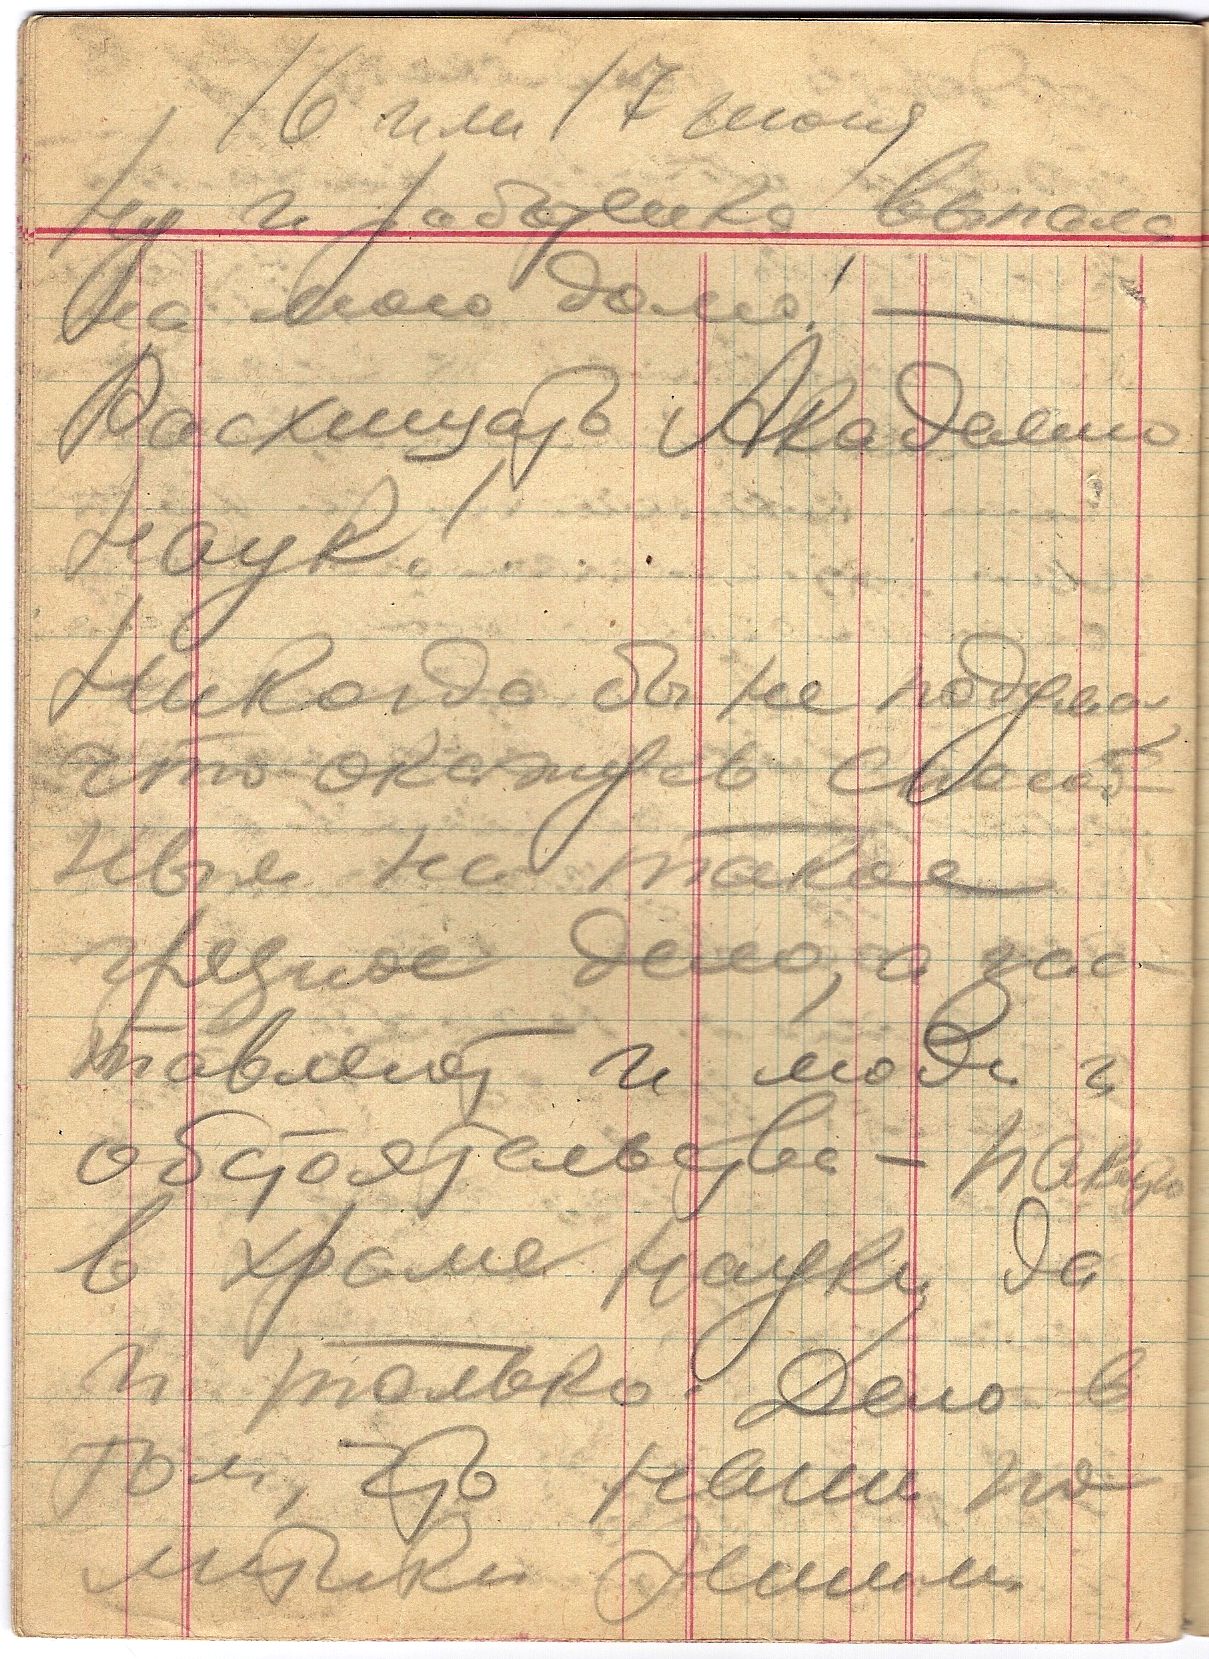 16 или 17 июня
Ну и работенка выпала
на мою долю!
Расхищать Академию
Наук!
Никогда бы не подумал
что окажусь способ-
ным на такое
грязное дело, а зас-
тавляют и люди и
обстоятельства –
в храме науки, да
и только. Дело в
том, что наши по-